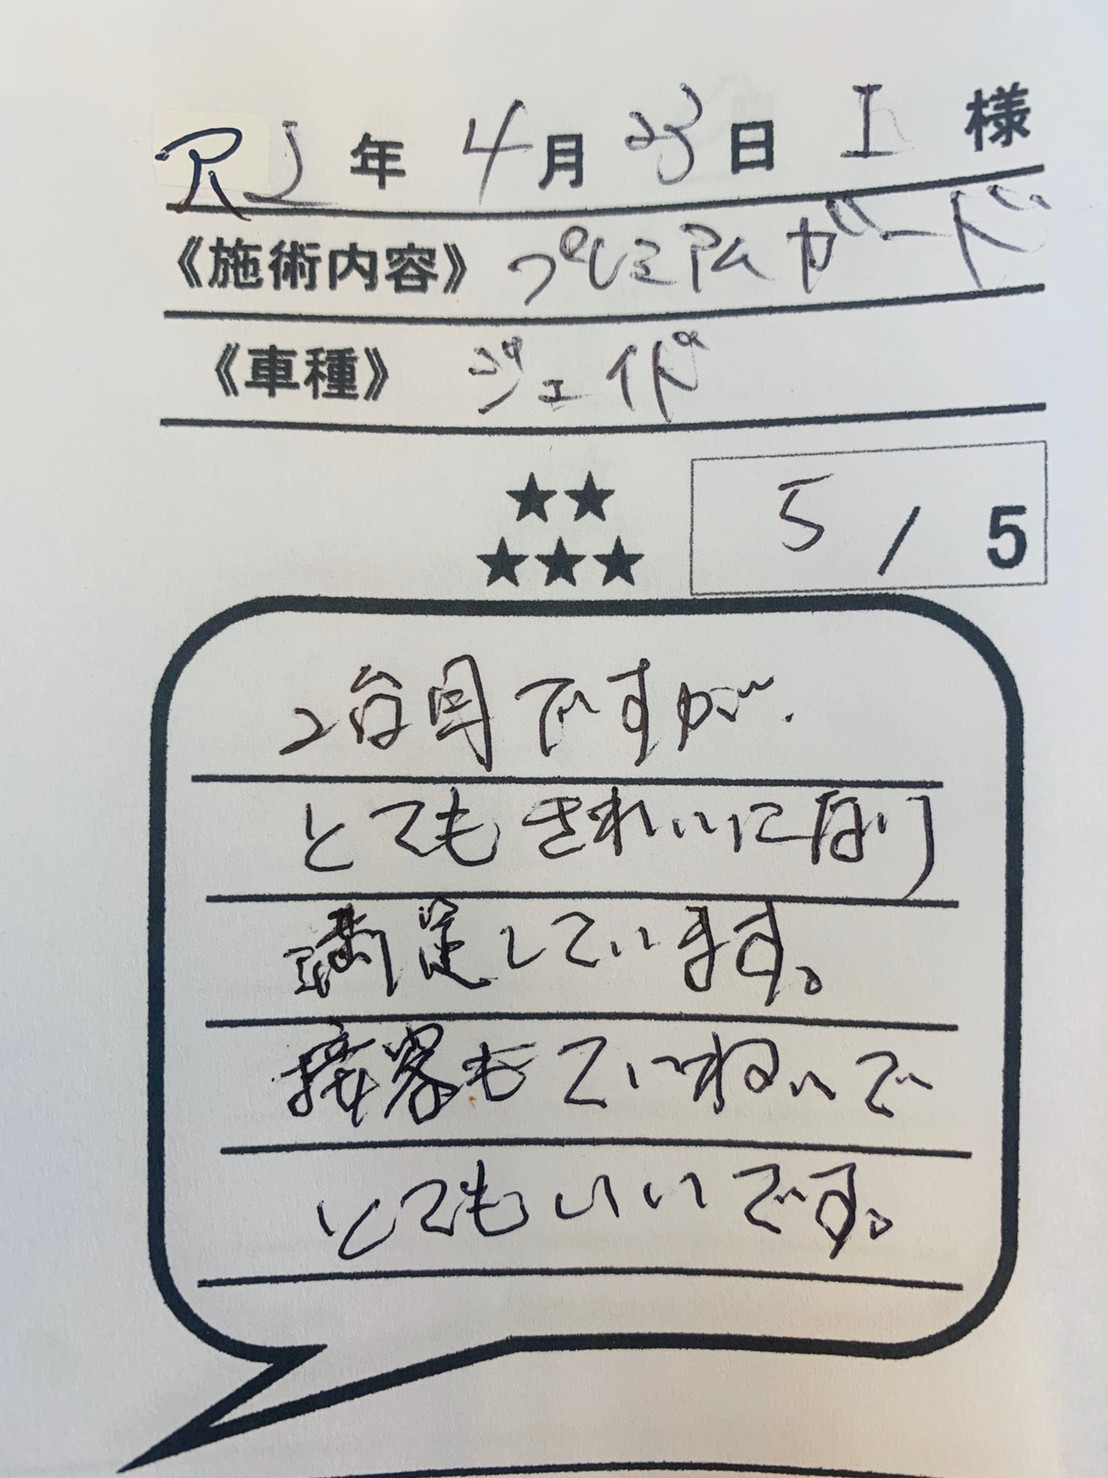 R2年4月23日 I 様
《施術内容》プレミアムガード
《車種》ジェイド
★★
★★★
5 / 5
2台目ですが、
とてもきれいになり
満足しています。
接客もていねいで
とてもいいです。